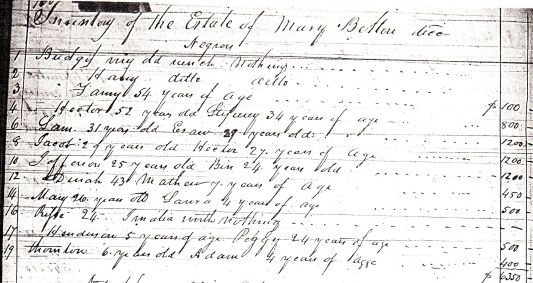 Inventory of the Estate of Mary Belton decd
Negroes
1 Bridget very old wench Nothing
2 Hany ditto ditto
3 Fanny 54 years of age
4 Hector 52 years old Sidney 34 years of age $ 100
6 Sam 31 years old Esaw 29 years old 800
8 Jacob 29 years old Hector 27 years of age 1200
10 Jefferson 25 years old Ben 24 years old 1200
12 Dinah 43 Mathew 7 years of age 1200
14 Mary 26 years old Laura 4 years of age 450
16 24 India worth Nothing 500
17 Henderson 5 years of age Peggy 24 years of age 500
19 Thornton 6 years old Adam 4 years of age 400
$ 6350